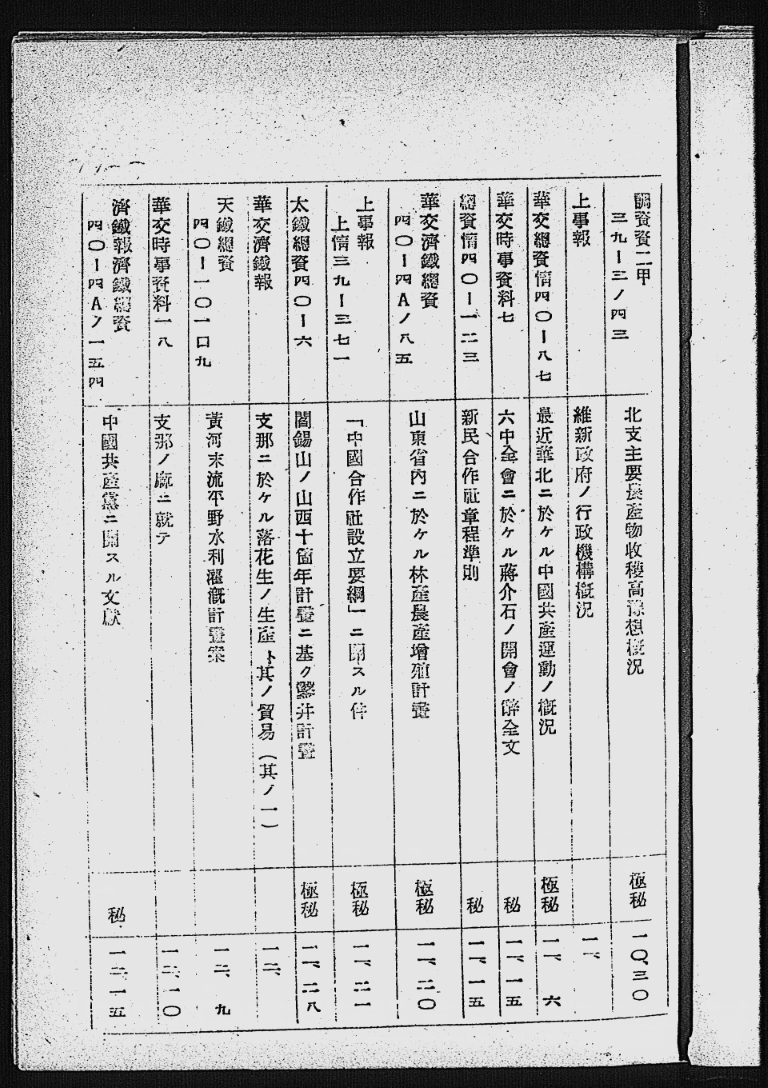 調資資二甲
三九ー三ノ四三
北支主要農產物收穫高豫想概況
極秘
一〇、三〇
上事報
維新政府ノ行政機構概況
一一、
華交總資情四〇ー八七
最近華北ニ於ケル中國共產運動ノ概況
極秘
一一、六
華交時事資料七
六中全會ニ於ケル蔣介石ノ開會ノ辭全文
秘
一一、一五
總資情四〇ー一二三
新民合作社章程準則
秘
一一、一五
華交濟鐵總資
四〇ー四Aノ八五
山東省內ニ於ケル林產農產增殖計畫
極秘
一一、二〇
上事報
上情三九ー三七一
「中國合作社設立要綱」ニ關スル件
極秘
一一、二一
太鐵總資四〇ー六
閻錫山ノ山西十箇年計畫ニ基ク鑿井計畫
極秘
一一、二八
華交濟鐵報
支那ニ於ケル落花生ノ生產ト其ノ貿易(其ノ一)
一二、
天鐵總資
四〇ー一〇一口九
黃河末流平野水利灌漑計畫案
一二、九
華交時事資料一八
支那ノ廟ニ就テ
一二、一〇
濟鐵報濟鐵總資
四〇ー四Aノ一五四
中國共產黨ニ關スル文獻
秘
一二、一五